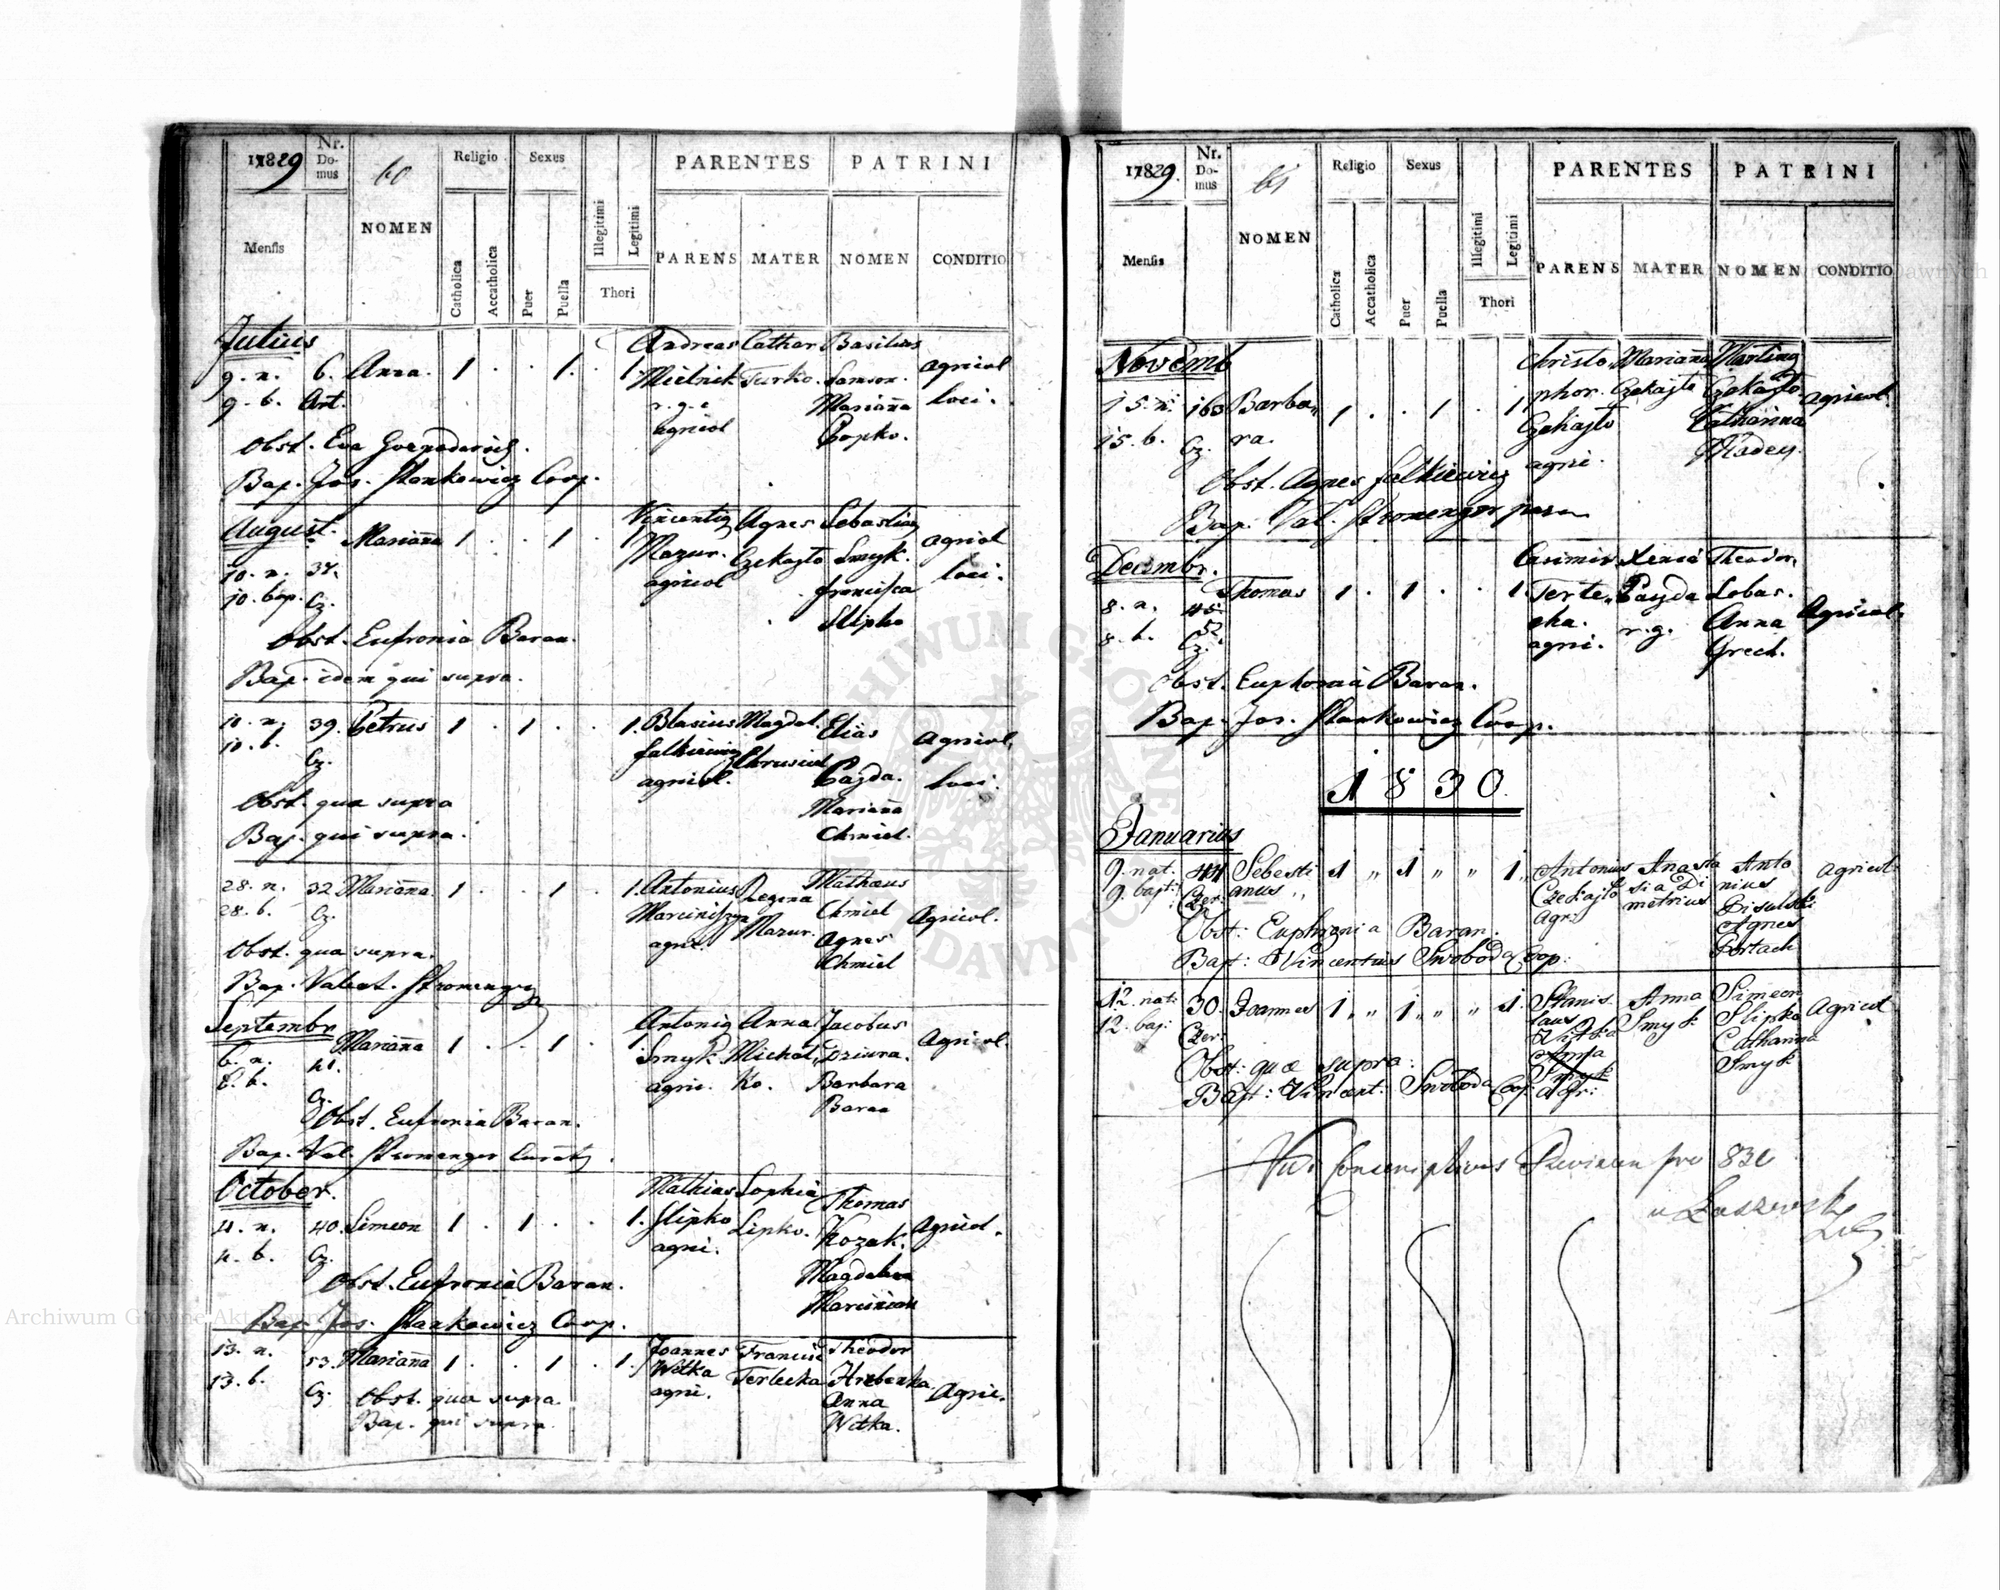 1829
Nr. Domus
60
NOMEN
Religio
Sexus
PARENTES
PATRINI
Mensis
Catholica
Accatholica
Puer
Puella
Illegitimi
Legitimi
Thori
PARENS
MATER
NOMEN
CONDITIO
Julius
Andreas Cathar Basilius
9. n. 6. Anna. 1 . . 1. 1. Mielnik Turko. Samson. agricol
9. b. Art. r. g. c Marianna loci.
agricol Popko.
Obst. Eva
Bap. Jos. Stankowicz Coop.
August.
Marianna 1 . . 1 . 1 Vincentig Agnes Sebastiag
Mazur. Czekajto Smyk. agricol
10. n. 37. agricol Francisca loci.
10. bap. Cz. Slipko
Obst. Eufronia Baran.
Bap. idem qui supra.
10. n. 39. Petrus 1 . 1 . . 1. Blasius Magdal. Elias agricol.
10. b. Cz. Falkiewicz Chrusciel Pajda. loci.
agricol. Marianna
Obst. qua supra Chmiel.
Bap. qui supra.
28. n. 32 Marianna 1 . . 1 . 1. Antonius Regina Mathaeus
28. b. Cz. Mazur. Chmiel Agricol.
agric. Agnes
Obst. qua supra. Chmiel
Bap. Valent. Stromenger
Septembr.
Antonig Anna Jacobus
6. n. 41. Marianna 1 . . 1 . 1. Smyk Michal, Dziura. Agricol.
6. b. Cz. agric. ko. Barbara
Baran
Obst. Eufronia Baran.
Bap. Val. Stromenger Curatg.
October.
Mathias Sophia Thomas
4. n. 40. Simeon 1 . 1 . . 1. Slipko Lipko. Kozak. Agricol.
4. b. Cz. agri. Magdalena
Obst. Eufronia Baran. Marciniak
Bap. Jos. Stankowicz Coop.
13. n. 53. Marianna 1 . . 1 . 1. Joannes Francisc Theodor
13. b. Cz. Witka Terlecka Hrebenka. Agric.
agri. Anna
Obst. qua supra. Witka.
Bap. qui supra.
1829.
Nr. Domus
61
NOMEN
Religio
Sexus
PARENTES
PATRINI
Mensis
Catholica
Accatholica
Puer
Puella
Illegitimi
Legitimi
Thori
PARENS
MATER
NOMEN
CONDITIO
Novemb
Christo Marianna Marting
15. n. 160 Barba, 1 . . 1 . 1 phor. Czekajto Czekajto. Agricol.
15. b. Cz. ra. Czekajto Catharina
agri.
Obst. Agnes Falkiewicz
Bap. Val. Stromenger
Decembr.
Casimir Xenia Theodor,
8. n. 45 Thomas 1 . 1 . . 1 Terle, Pajda Lobas. Agricol.
8. b. 52. cka. r. g. Anna
Cz. agri. Grech.
Obst. Euphonia Baran.
Bap. Jos. Stankowicz Coop.
1830.
Januarius
9. nat. 44 Sebasti 1 „ 1 „ „ 1„ Antonius Anasta Anto Agricol:
9. bapt: Czer: anus „ Czekajto sia Di nius
agr: metrius
Obst: Euphronia Baran. Agnes
Bapt: Vincentius Swoboda Coop: Portach
12. nat: 30. Joannes 1 „ 1 „ „ 1. Stanis Anna Simeon Agricol
12. bap: Czer: laus Smyk Slipko
Witka Catharina
Obst: quae supra: Anna Smyk Smyk
Bapt: Vincent: Swoboda Coop: Agr:
pro 830
Archiwum Główne Akt Dawnych
ARCHIWUM GŁÓWNE AKT DAWNYCH